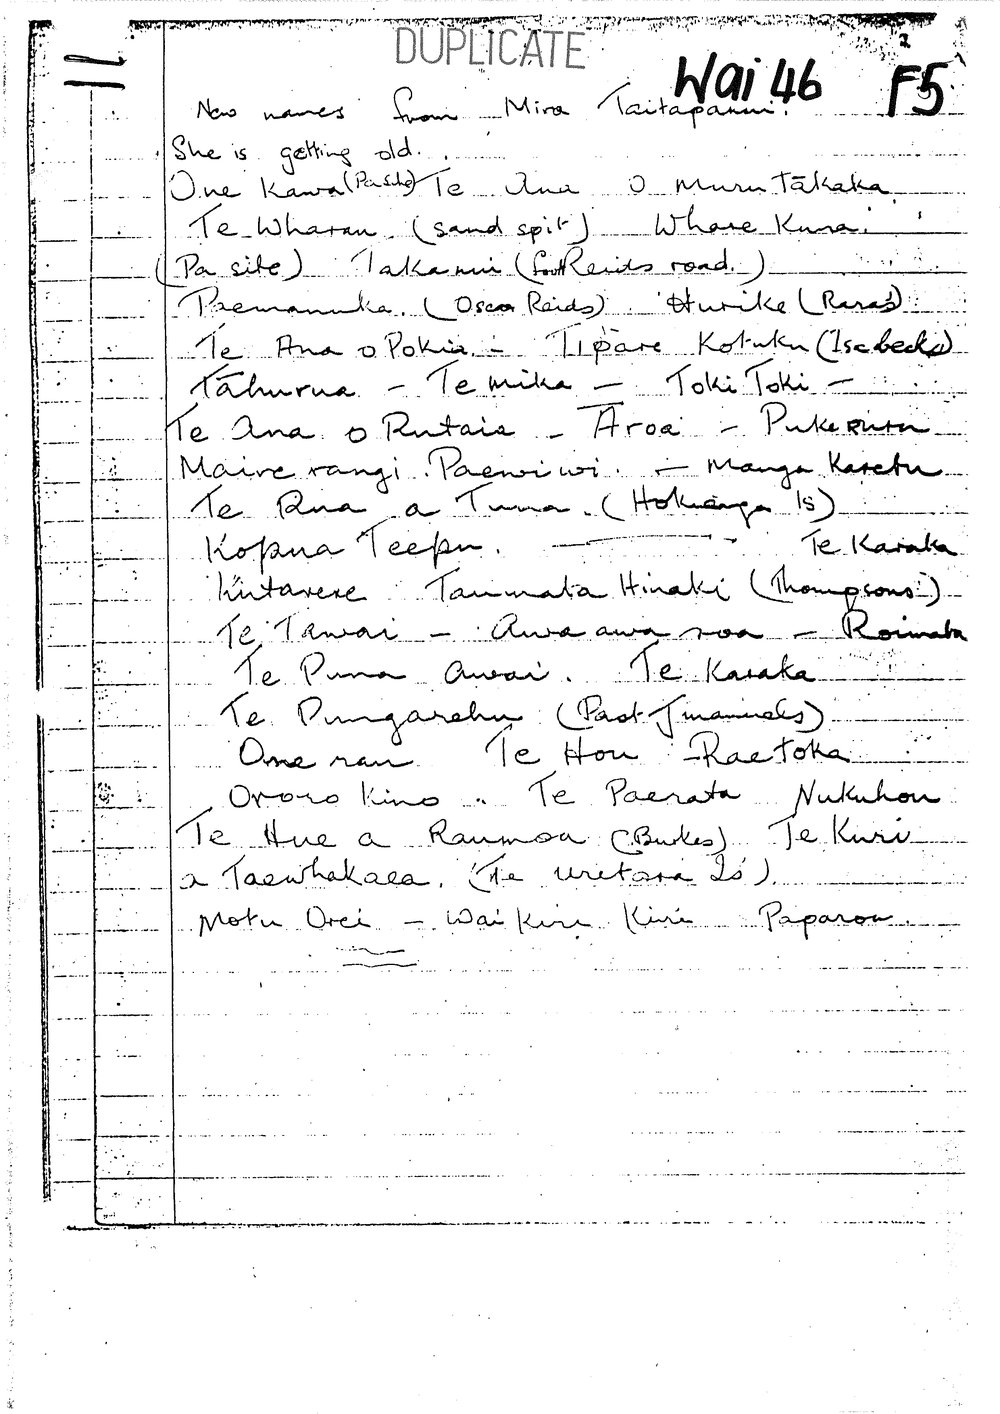 DUPLICATE
Wai 46 F5
New names from Mira Taitapanui.
She is getting old.
One Kawa (Pa site) Te Ana o Muru Tākaka
Te Wharau (sand spit) Whare Kura
(Pa site) Takanui ( Reids road.)
Paemanuka. (Oscar Reids) Hurike (Rara's)
Te Ana o Pokia - Tipare Kotuku (Isabecks)
Tāhurua - Te mika - Toki Toki -
Te Ana o Rutaia - Aroa - Pukeruru
Maire rangi. Paewiwi. - Manga Karetu
Te Rua a Tuna. (Hokianga Is)
Kopua Teepu. Te Karaka
Kutarere Taumata Hinaki (Thompsons')
Te Tawai - Awa awa roa - Roimata
Te Puna Awai. Te Karaka
Te Pungarehu (Past Emanuels)
One rau Te Hou - Raetoka
Ororo Kino .. Te Paerata Nukuhou
Te Hue a Raumoa (Burkes) Te Kuri
a Taewhakaea. (Te Uretara Is).
Motu Orei - Wai Kiri Kiri Paparoa.